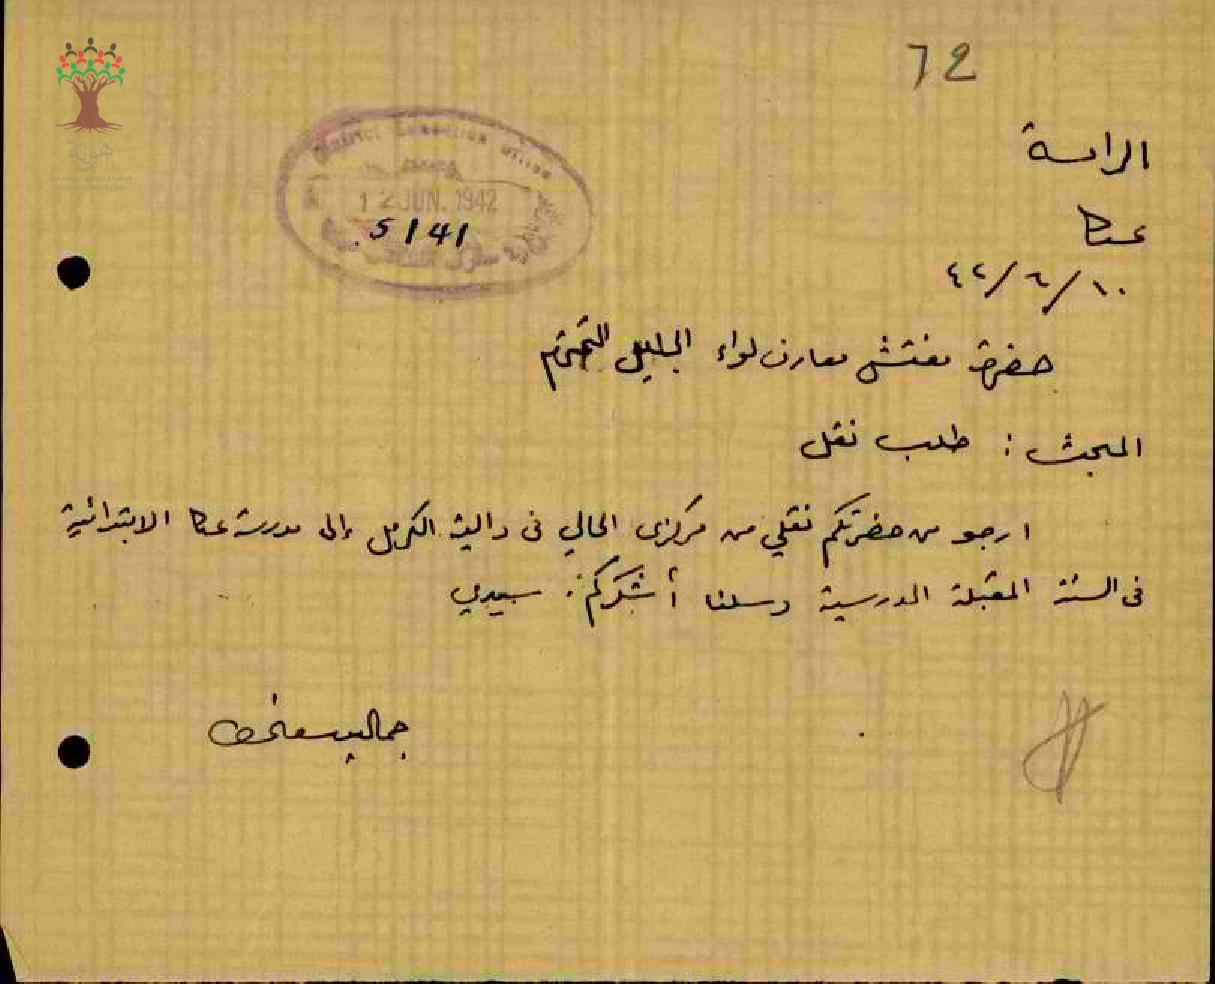 72
الرامة
District Education Office
12 JUN. 1942
5141
عكا
١٠/٦/٤٢
حضرة مفتش معارف لواء الجليل المحترم
المبحث : طلب نقل
ارجو من حضرتكم نقلي من مركزي الحالي في دالية الكرمل إلى مدرسة عكا الابتدائية
في السنة المقبلة المدرسية وسلفا أشكركم. سيدي
جمال
هوية